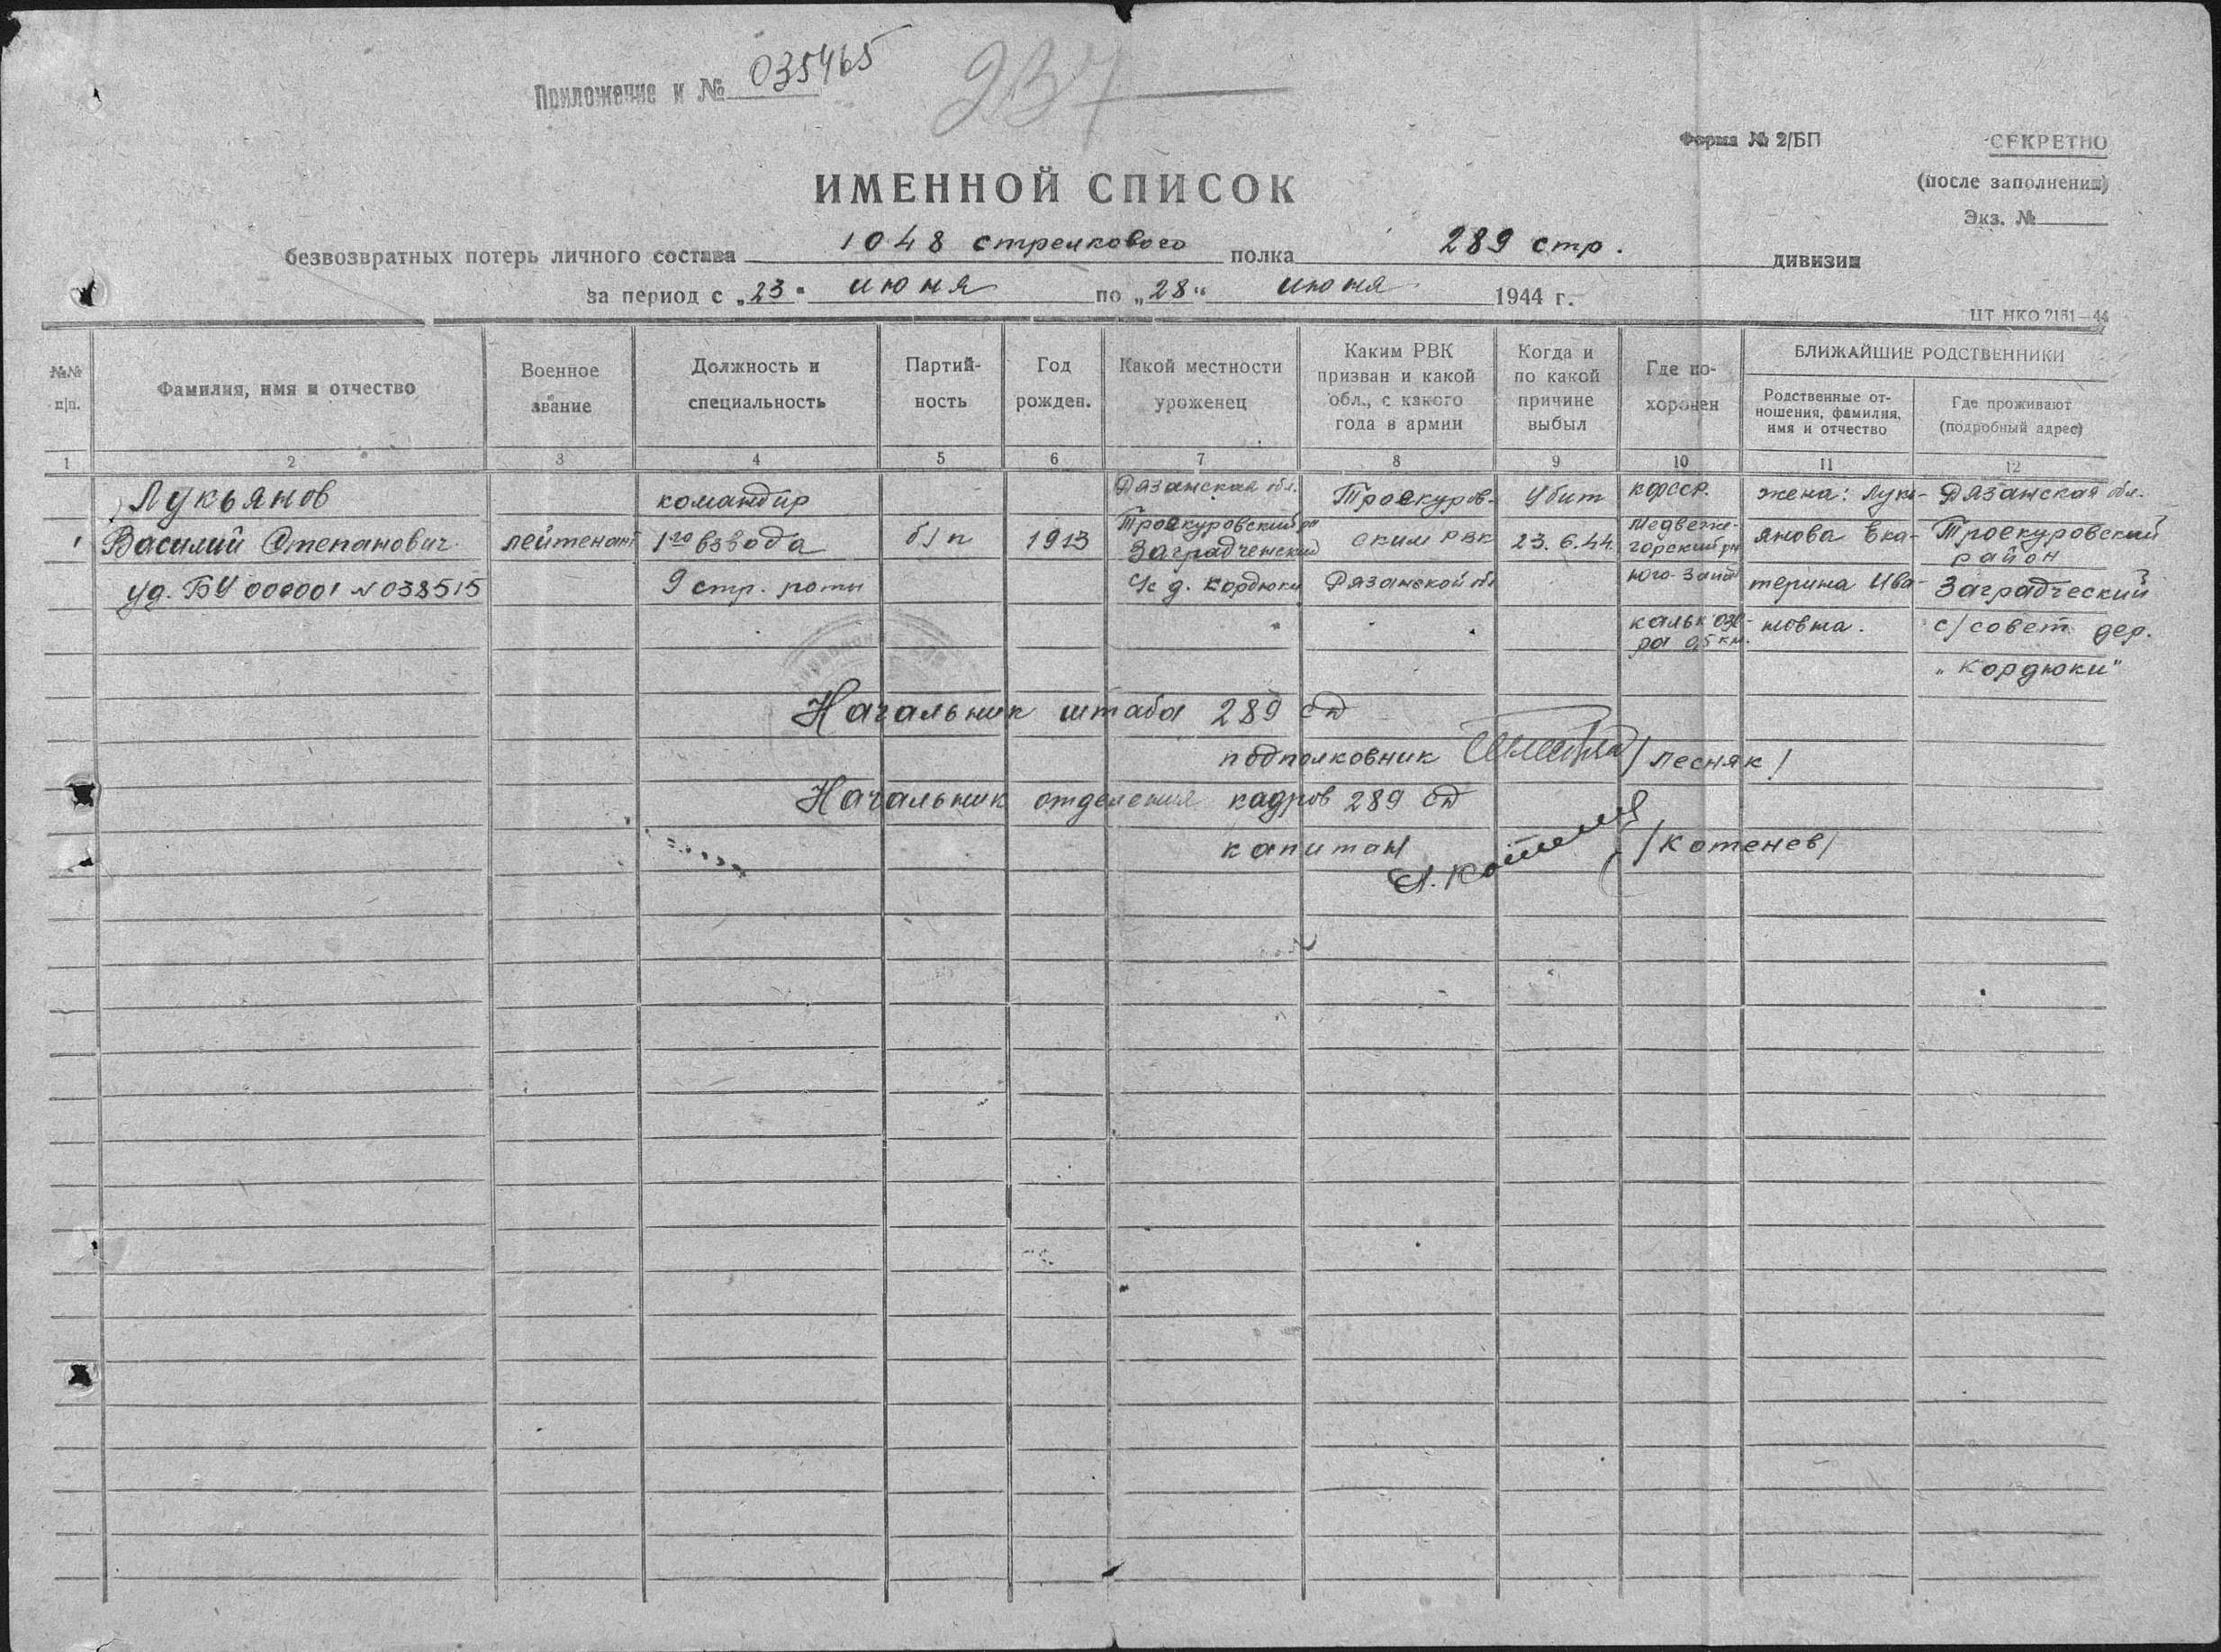 Приложение к № 035465
237
Форма № 2/БП
СЕКРЕТНО
(после заполнения)
Экз. №
ИМЕННОЙ СПИСОК
безвозвратных потерь личного состава 1048 стрелкового полка 289 стр. дивизии
за период с „23“ июня по „28“ июня 1944 г.
ЦТ НКО 2151—44
№№ п/п.
Фамилия, имя и отчество
Военное звание
Должность и специальность
Партий-ность
Год рожден.
Какой местности уроженец
Каким РВК призван и какой обл., с какого года в армии
Когда и по какой причине выбыл
Где по-хоронен
БЛИЖАЙШИЕ РОДСТВЕННИКИ
Родственные от-ношения, фамилия, имя и отчество
Где проживают (подробный адрес)
1 2 3 4 5 6 7 8 9 10 11 12
1
Лукьянов
Василий Степанович
уд. БУ 000001 № 038515
лейтенант
командир
1го взвода
9 стр. роты
б/п
1913
Рязанская обл.
Троекуровский рн
Заградченский
с/с д. Кордюки
Троекуров-
ским РВК
Рязанской обл
Убит
23.6.44.
КФССР.
Медвеже-
горский рн
юго-запад
кальк озе-
ра 0,5 км.
жена: Лукь-
янова Ека-
терина Ива-
новна.
Рязанская обл.
Троекуровский
район
Заградческий
с/совет дер.
„Кордюки“
Начальник штаба 289 сд
подполковник /Лесняк/
Начальник отделения кадров 289 сд
капитан А. Котенев /Котенев/